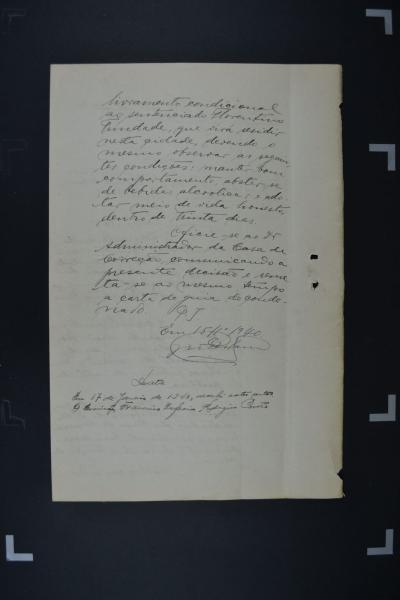 livramento condicional
ao sentenciado Florentino
Trindade, que irá residir
nesta cidade, devendo o
mesmo observar as seguin-
tes condições: manter bom
comportamento, abster-se
de bebidas alcoolicas e ado-
tar meio de vida honesto,
dentro de trinta dias.
Oficie-se ao Sr.
Administrador da Casa de
Correção, communicando a
presente decisão e reme-
ta-se ao mesmo tempo
a carta de guia do conde-
nado.
Em 15
Data
Em 17 de Janeiro de 1940, recebi estes autos
O Escrivão, Francisco